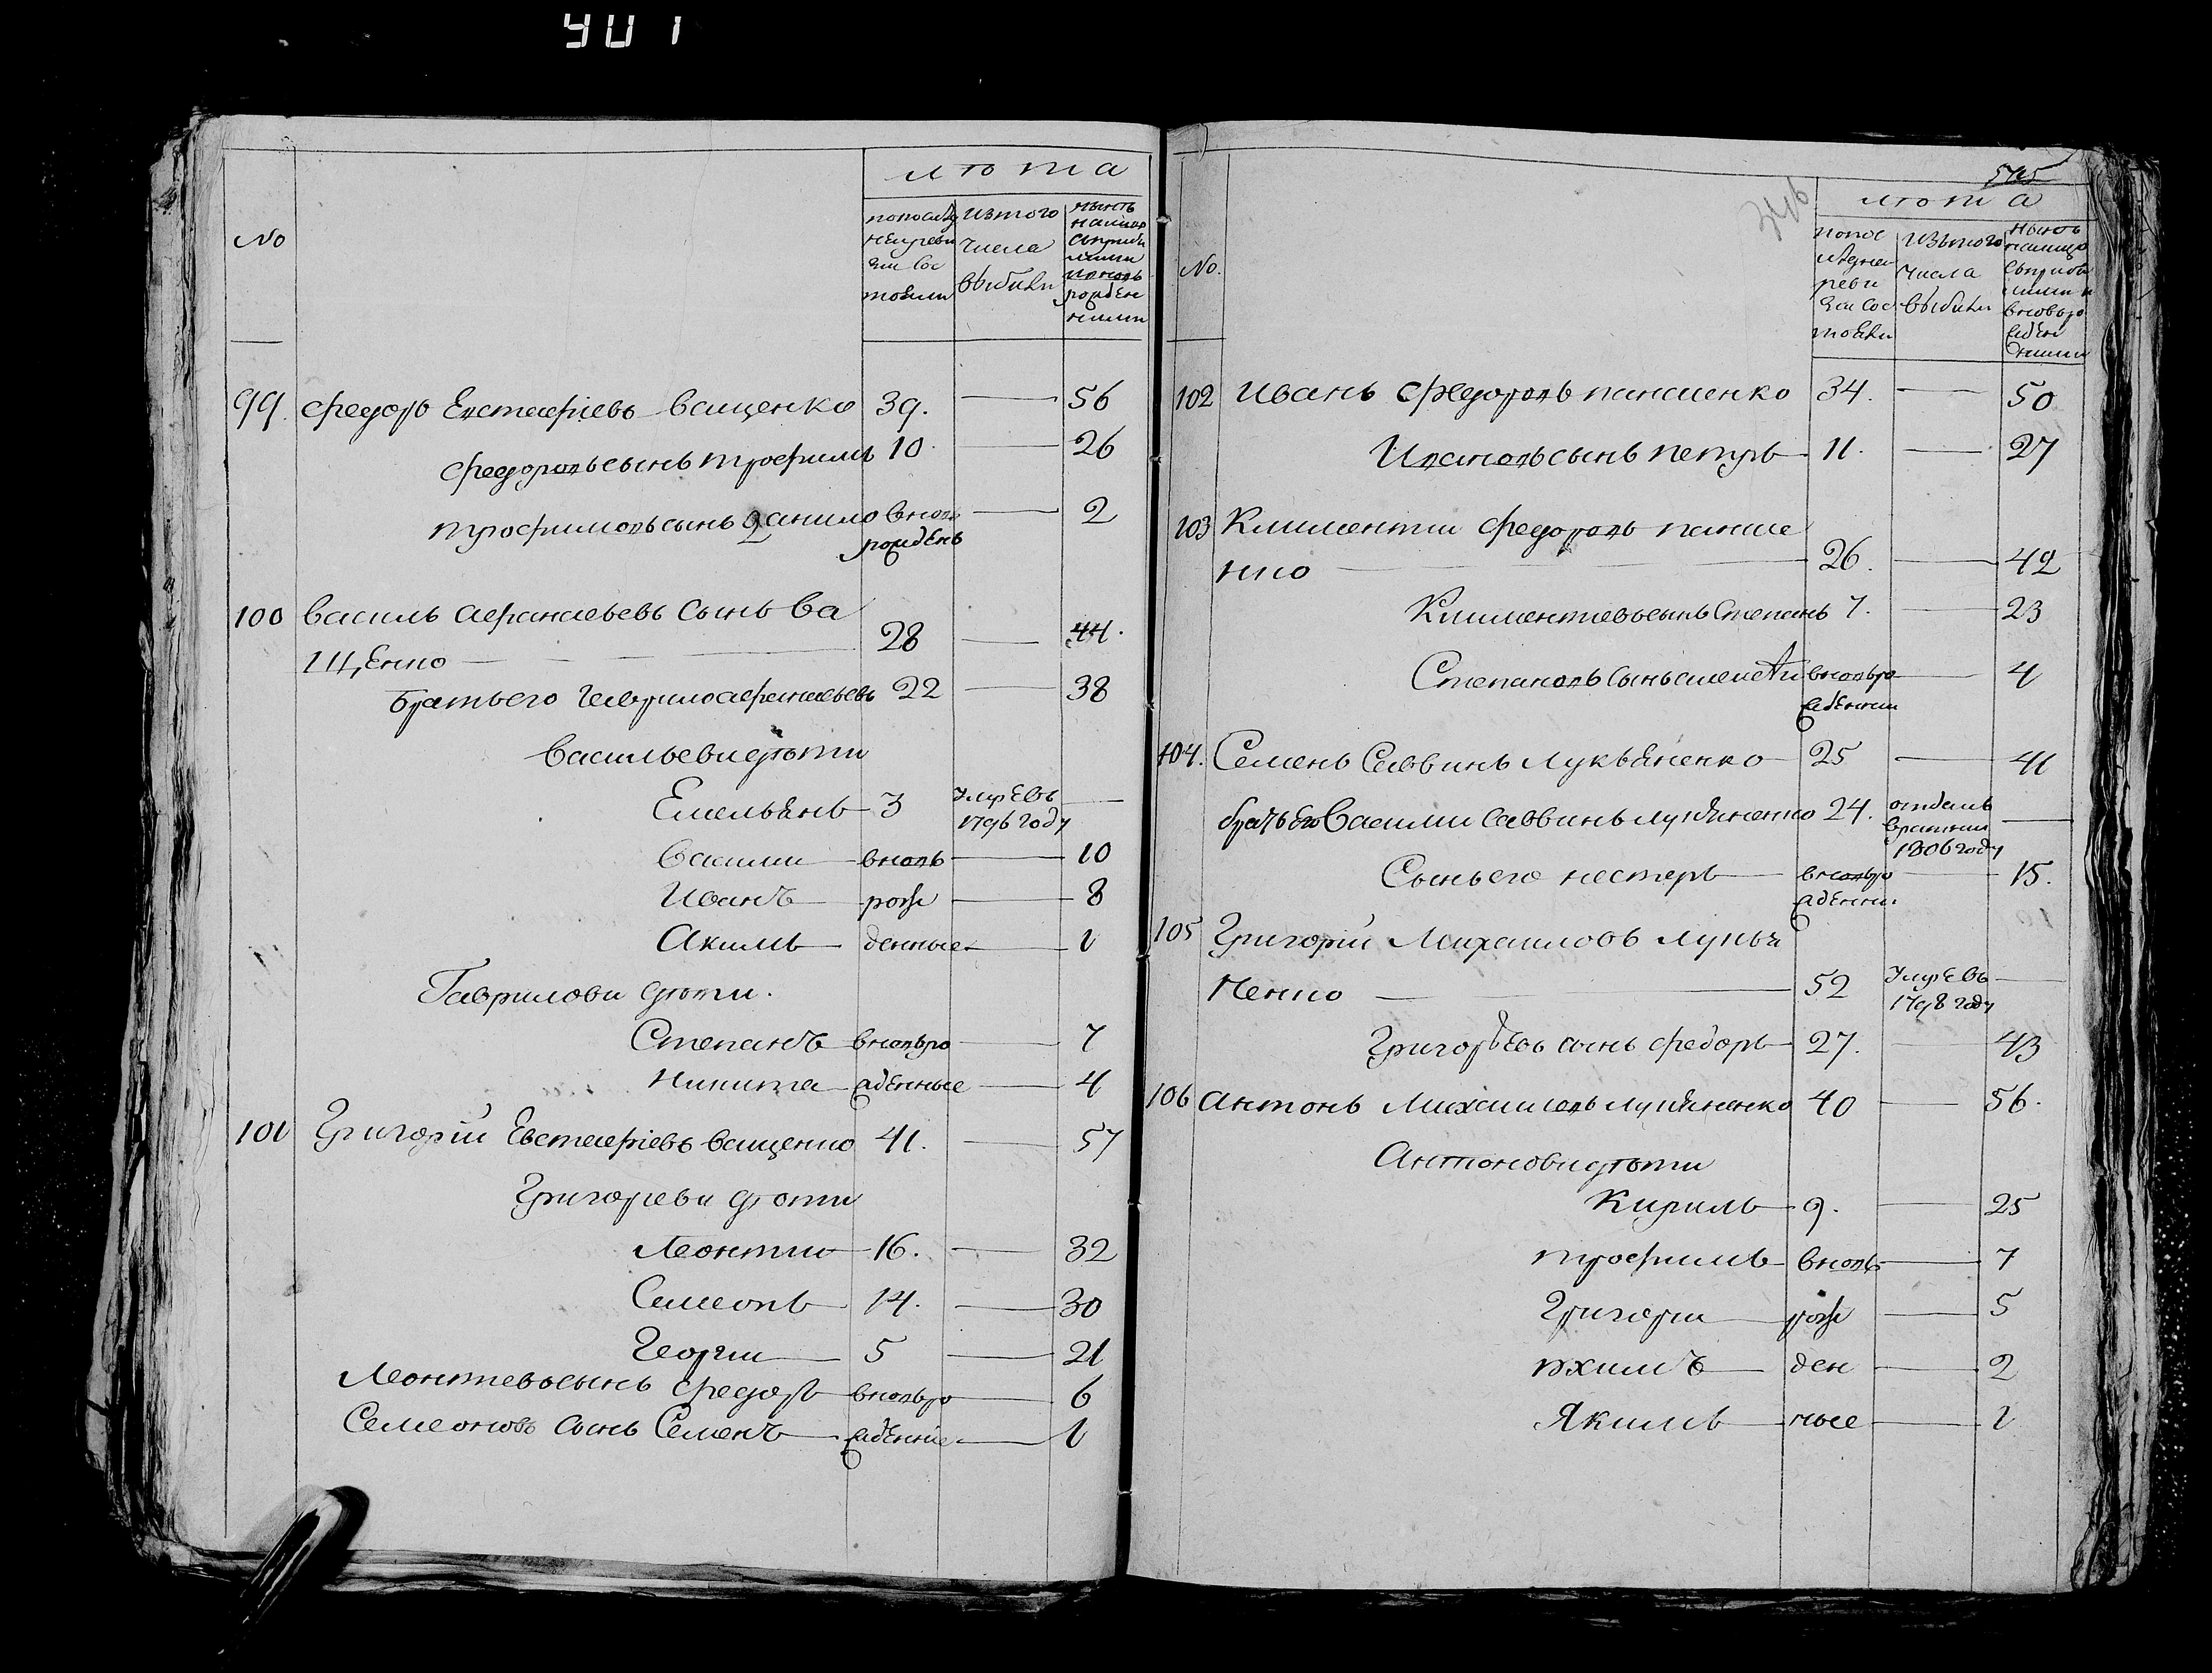 901
лѣта
№
по последней ревизіи состояли
изтого числа выбили
нынѣ налицо сприбылими и вновь рожденними
99. Федоръ Евстафіевъ Ващенко 39. — 56
Федоровъ сынъ трофимъ 10 — 26
трофимовъ сынъ данило вновь рожденъ — 2
100 василь афанасьевъ сынъ ва
щенко — 28 — 44.
братъ его гаврило афанасьевъ 22 — 38
васильеви дѣти
Емельянъ 3 умре въ 1796 году —
васили вновь — 10
Иванъ рож — 8
Акимъ денные — 1
Гаврилови дѣти.
Степанъ вновь ро — 7
никита жденные — 4
101 Григорій Евстафіевъ ващенко 41. — 57
Григореви дѣти
Леонтии 16. — 32
Семеонъ 14. — 30
Георги 5 — 21
Леонтиевъ сынъ федоръ вновь ро — 6
Семеоновъ сынъ Семенъ жденніе — 1
346
545
лѣта
№.
попоследней ревизіи состояли
изътого числа выбили
нынѣ налицо сприбилими и вновь рожденними
102 иванъ федоровъ панасенко 34. — 50
Ивановъ сынъ петръ 11. — 27
103 Климентии федоровъ панасе
нко — 26. — 42
Климентиевъ сынъ Степанъ 7. — 23
Степановъ сынъ вновь рожденни — 4
104. Семенъ Саввинъ Лукьяненко 25 — 41
братъ его Василии саввинъ лукьяненко 24. отдань 1806 году —
Сынъ его нестеръ вновь рожденни — 15.
105 Григорій Михаиловъ лукья
ненко — 52 умре въ 1798 году —
Григорьевъ сынъ федоръ 27. — 43
106 антонъ михаиловъ лукьяненко 40 — 56.
Антонови дѣти
Кирилъ 9. — 25
трофимъ вновь — 7
Григори рож — 5
ден — 2
Якимъ ные — 1